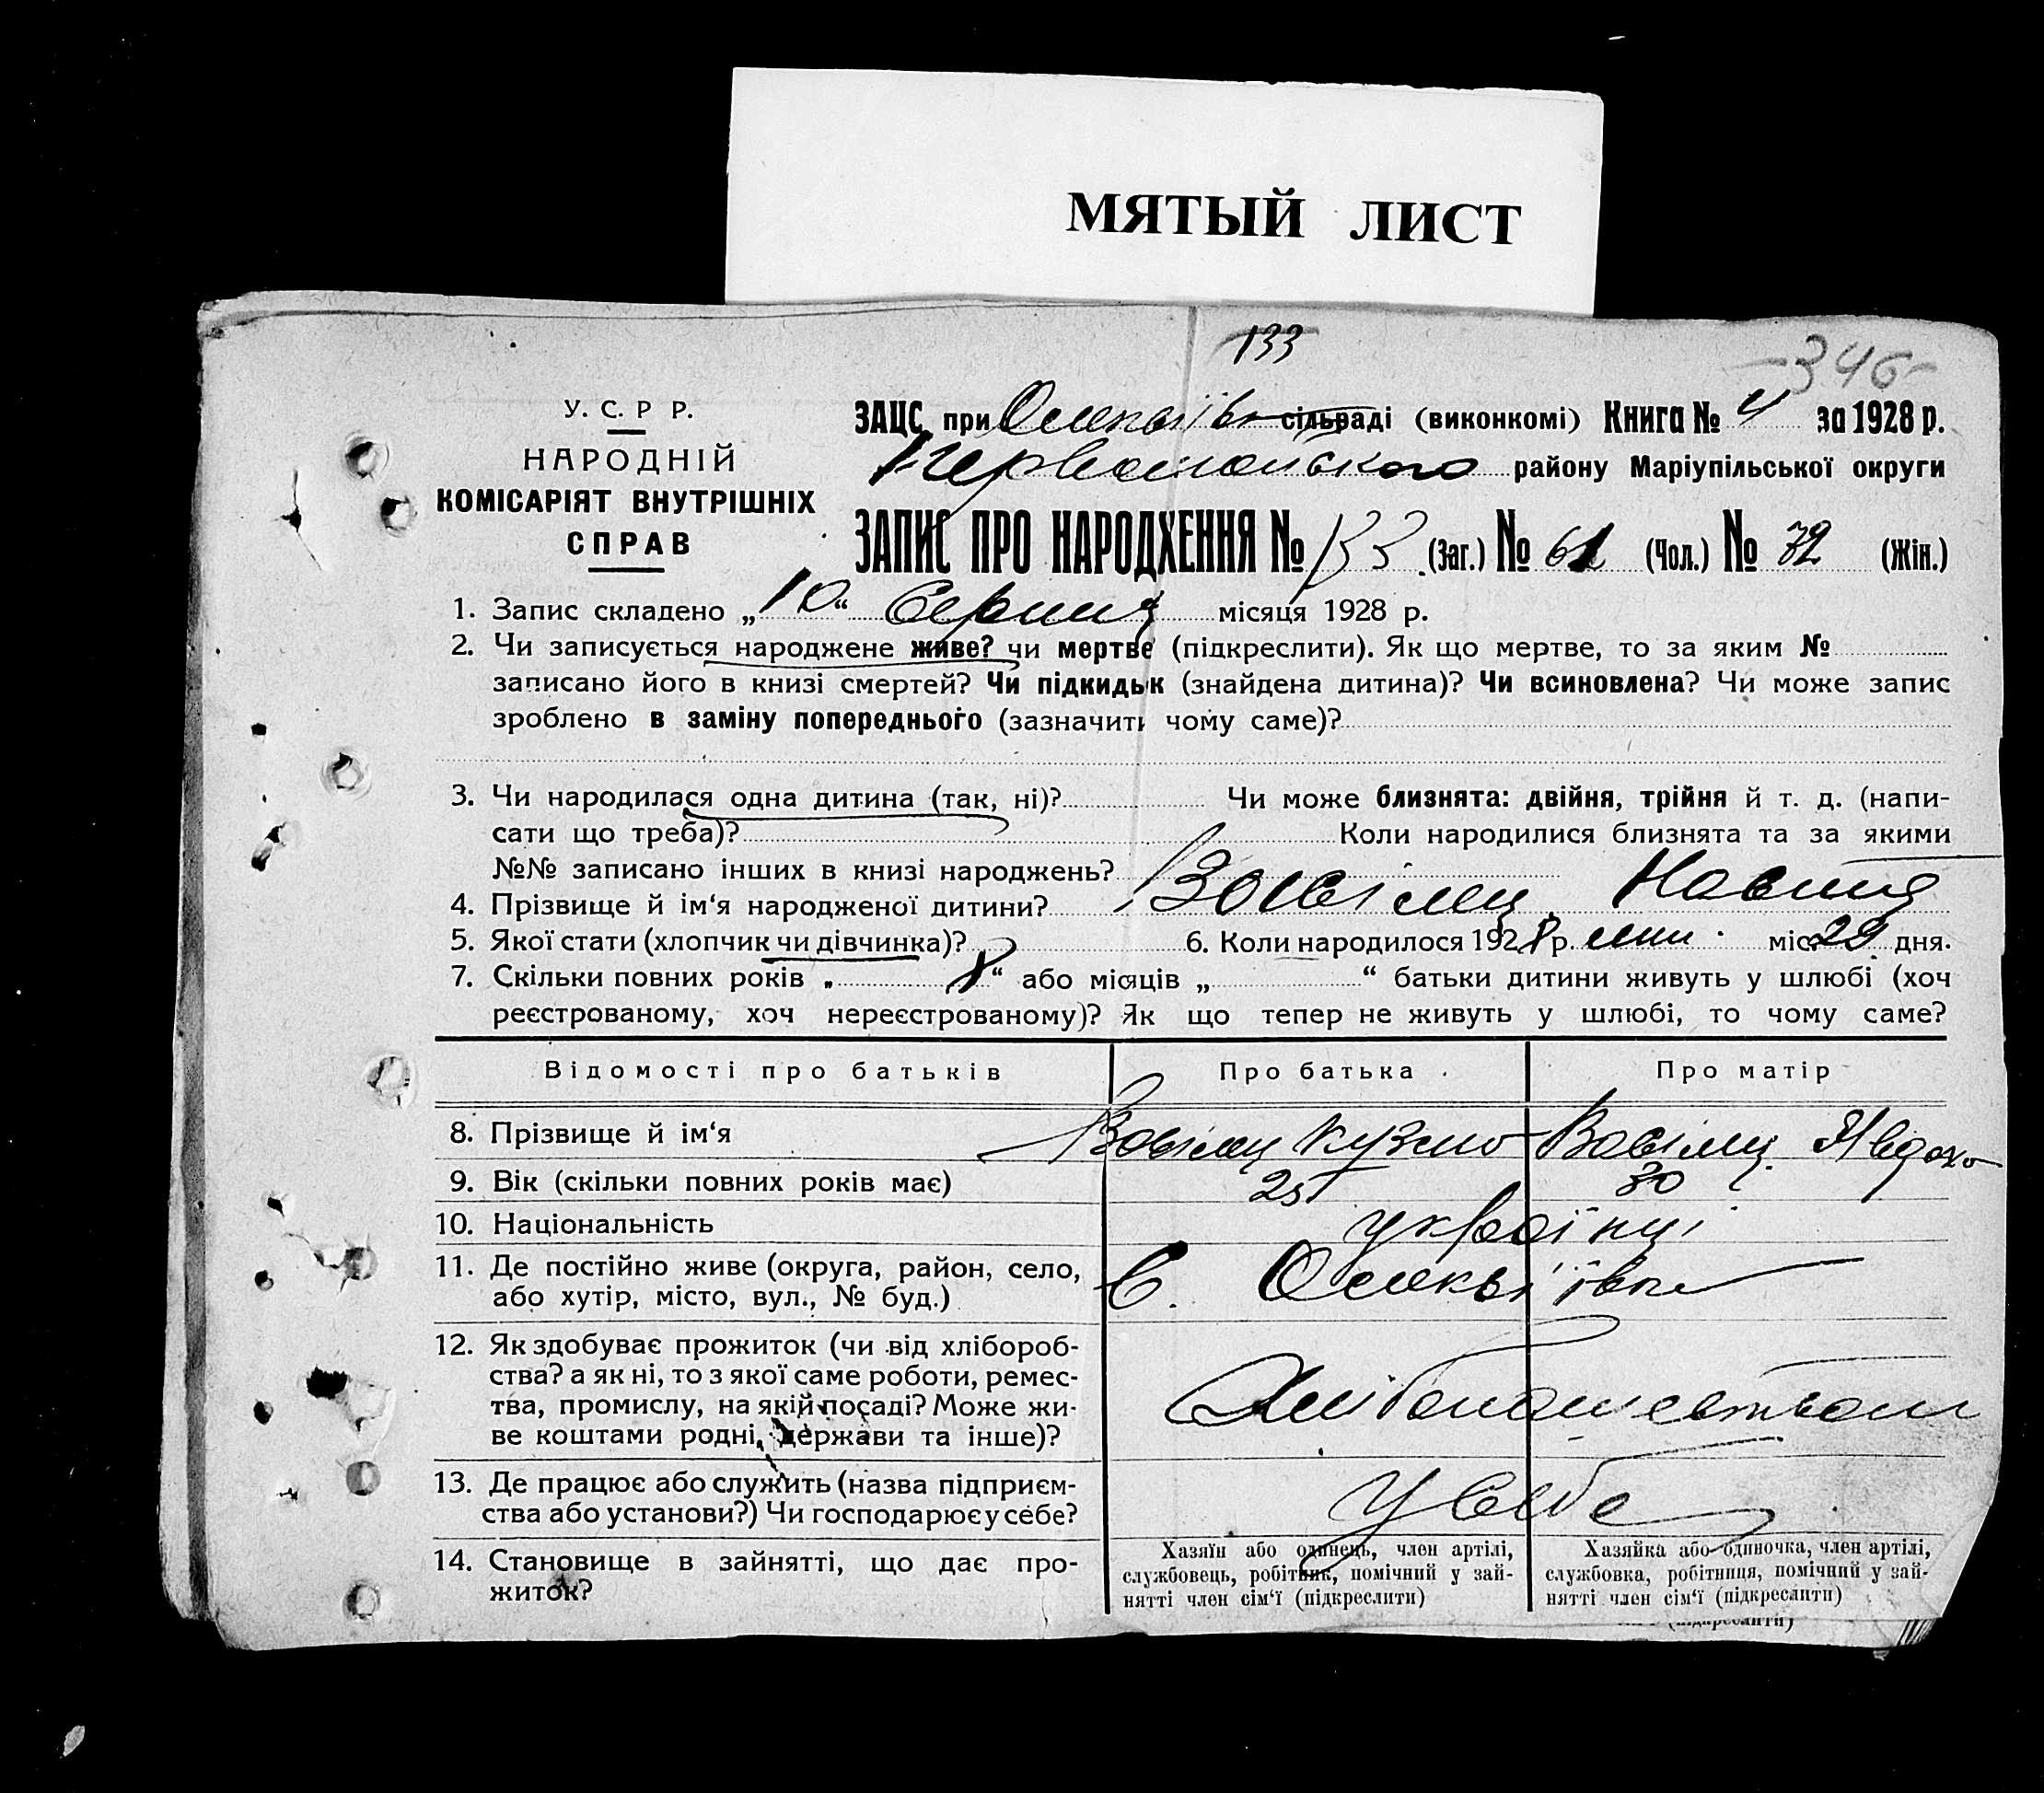 МЯТЫЙ ЛИСТ
133
-346-
У. С. Р Р.
НАРОДНІЙ
КОМІСАРІЯТ ВНУТРІШНІХ
СПРАВ
ЗАЦС при Олексіївк сільраді (виконкомі) Книга № 4 за 1928 р.
Первомайського району Маріупільської округи
ЗАПИС ПРО НАРОДЖЕННЯ № 133 (Заг.) № 61 (Чол.) № 72 (Жін.)
1. Запис складено „10“ Серпня місяця 1928 р.
2. Чи записується народжене живе? чи мертве (підкреслити). Як що мертве, то за яким №
записано його в книзі смертей? Чи підкидьк (знайдена дитина)? Чи всиновлена? Чи може запис
зроблено в заміну попереднього (зазначить чому саме)?
3. Чи народилася одна дитина (так, ні)? Чи може близнята: двійня, трійня й т. д. (напи-
сати що треба)? Коли народилися близнята та за якими
№№ записано інших в книзі народжень?
4. Прізвище й ім‘я народженої дитини?
5. Якої стати (хлопчик чи дівчинка)? 6. Коли народилось 1928 р. лип. міс. 29 дня.
7. Скільки повних років „ 8 “ або місяців „ “ батьки дитини живуть у шлюбі (хоч
реєстрованому, хоч нереєстрованому)? Як що тепер не живуть у шлюбі, то чому саме?
Відомості про батьків Про батька Про матір
8. Прізвище й ім‘я Кузьма Явдоха
9. Вік (скільки повних років має) 25 30
10. Національність українці
11. Де постійно живе (округа, район, село,
або хутір, місто, вул., № буд.) с. Олексіївка
12. Як здобуває прожиток (чи від хлібороб-
ства? а як ні, то з якої саме роботи, ремес-
тва, промислу, на якій посаді? Може жи-
ве коштами родні, держави та інше)? Хлібопашеством
13. Де працює або служить (назва підприєм-
ства або установи?) Чи господарює у себе? У себе
14. Становище в зайнятті, що дає про-
житок?
Хазяїн або одинець, член артілі,
службовець, робітник, помічний у зай-
нятті член сім‘ї (підкреслити)
Хазяйка або одиночка, член артілі,
службовка, робітниця, помічний у зай-
нятті член сім‘ї (підкреслити)
(підкреслити)